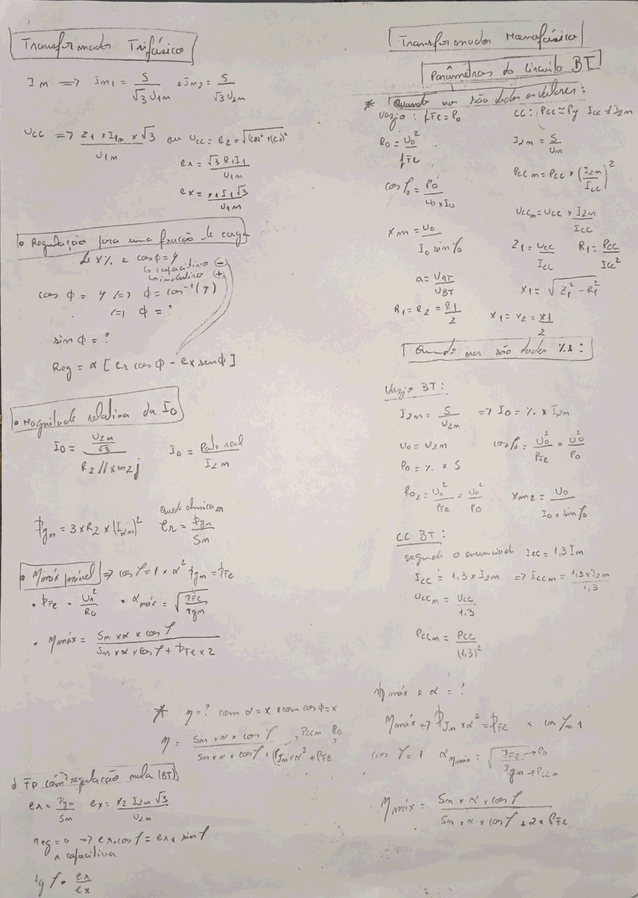 Transformador Trifásico
Im => Im1 = S/(√3 U1m) e Im2 = S/(√3 U2m)
Ucc => (Z1 × I1m × √3)/U1m ou Ucc = ez = √((er)²+(ex)²)
er = (√3 R1 I1)/U1m
ex = (x1 I1 √3)/U1m
• Regulação para uma fração de carga
de x% e cosφ = y
↳ capacitivo (-)
↳ indutivo (+)
cos φ = y (=) φ = cos⁻¹(y)
(=) φ = ?
sin φ = ?
Reg = α [er cos φ - ex senφ]
• Magnitude relativa da I0
I0 = (U2m/√3)/(R2 // xm2 j) I0 =
I2m
Pjm = 3 × R2 × (I2m)² er = Pjm/Sm
• ηmáx possível => cos φ = 1 × α² Pjm = PFe
• PFe = Un²/R0 • αmáx = √(PFe/Pjm)
• ηmáx = (Sm × α × cos φ)/(Sm × α × cos φ + PFe × 2)
* η = ? com α = x × com cos φ = x
η = (Sm × α × cos φ)/(Sm × α × cos φ + (Pjm × α² + PFe) → Pccm P0
d) FP com regulação nula (BT)
er = Pjm/Sm ex = (x2 I2m √3)/U2m
reg = 0 => er × cos φ = ex × sin φ
∧ capacitiva
tg φ = er/ex
Transformador Monofásico
Parâmetros do circuito BT
* Quando nos são dados os valores:
Vazio: PFe = P0 CC: Pcc = Pj Icc ≠ I2m
R0 = U0²/PFe I2m = S/Um
cos φ0 = P0/(U0 × I0) Pccm = Pcc × (I2m/Icc)²
xm = U0/(I0 sin φ0) Uccm = Ucc × I2m/Icc
Z1 = Ucc/Icc R1 = Pcc/Icc²
a = UAT/UBT x1 = √(Z1² - R1²)
R1 = R2 = R1/2 x1 = x2 = x1/2
Quando nos são dadas %s:
Vazio BT:
I2m = S/U2m => I0 = % × I2m
U0 = U2m cos φ0 = U0²/PFe = U0²/P0
P0 = % × S
R02 = U0²/PFe = U0²/P0 xm2 = U0/(I0 × sin φ0)
CC BT:
segundo o enunciado Icc = 1,3 Im
Icc = 1,3 × I2m => Iccm = (1,3 × I2m)/1,3
Uccm = Ucc/1,3
Pccm = Pcc/(1,3)²
ηmáx e α = ?
ηmáx => Pjm × α² = PFe ∧ cos φ = 1
cos φ = 1 αηmáx = √(PFe → P0/Pjm → Pccm)
ηmáx = (Sm × α × cos φ)/(Sm × α × cos φ + 2 × PFe)